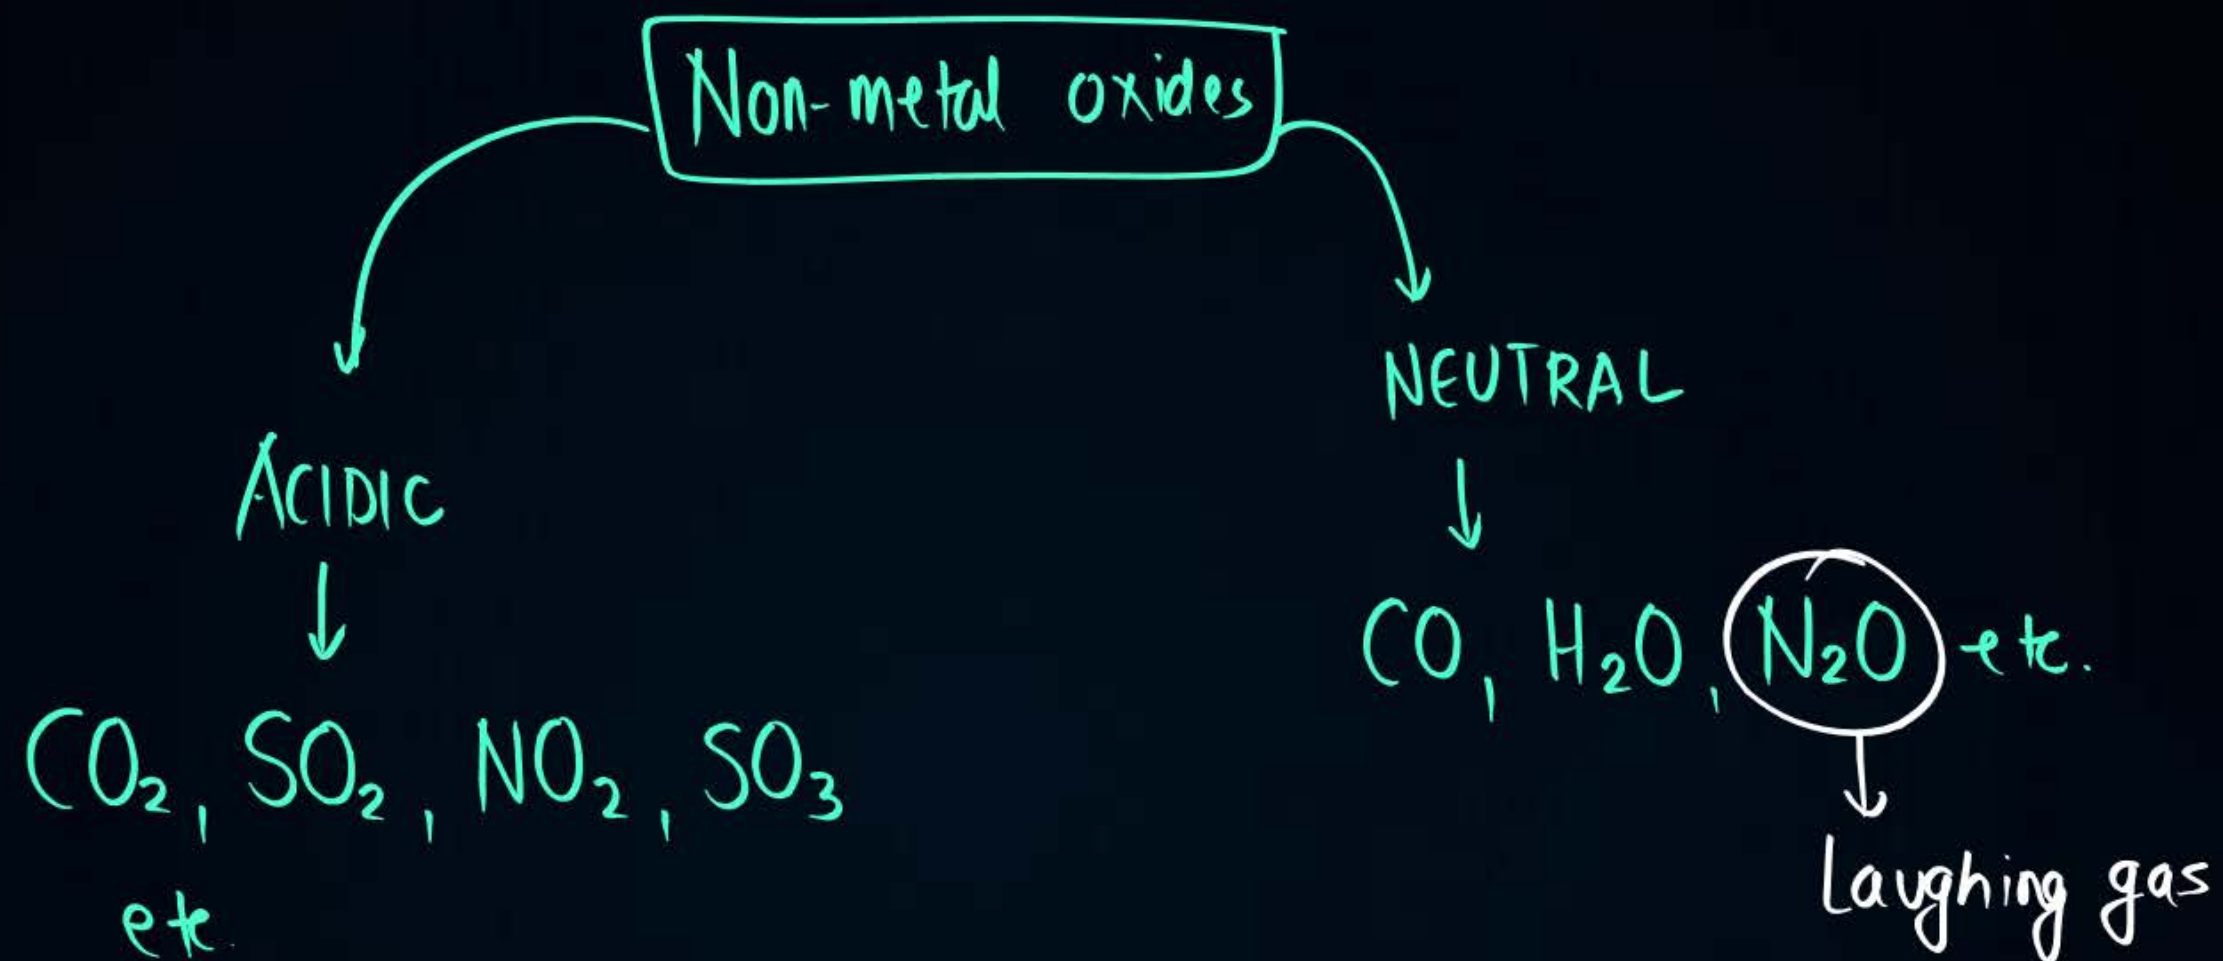 Non-metal oxides
ACIDIC
CO₂, SO₂, NO₂, SO₃
etc.
NEUTRAL
CO, H₂O, N₂O etc.
Laughing gas